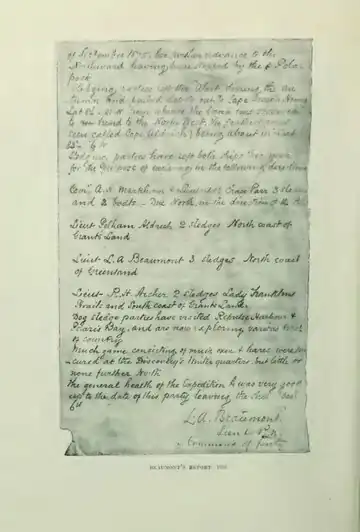 of September 1875, her further advance to the
Northward having been stopped by the Polar
pack
Sledging parties left the Alert during the
Autumn and pushed depots out to Cape Joseph Henry
Lat 82° where the land was
to trend to the North West
seen called Cape Aldrich) being about in Lat
Sledging parties have left both ships this year
for the purpose of exploring in the following directions
Com. A. H. Markham & Lieutenant Parr 3 sledges
and 2 boats – Due North, in the direction of the
Lieut Pelham Aldrich 2 sledges North coast of
Grants Land
Lieut L. A. Beaumont 3 sledges North coast
of Greenland
Lieut R. H. Archer 2 sledges Lady Franklins
Strait and South coast of Grants Land
Dog sledge parties have visited Repulse Harbour &
Polaris Bay, and are now exploring various
of country
Much game consisting of musk oxen & hares were
cured at the Discovery's Winter quarters but little or
none further North
The general health of the Expedition was very good
up to the date of this party leaving the
6th
L. A. Beaumont
Lieut R.N.
in Command of party
BEAUMONT'S REPORT, 1876